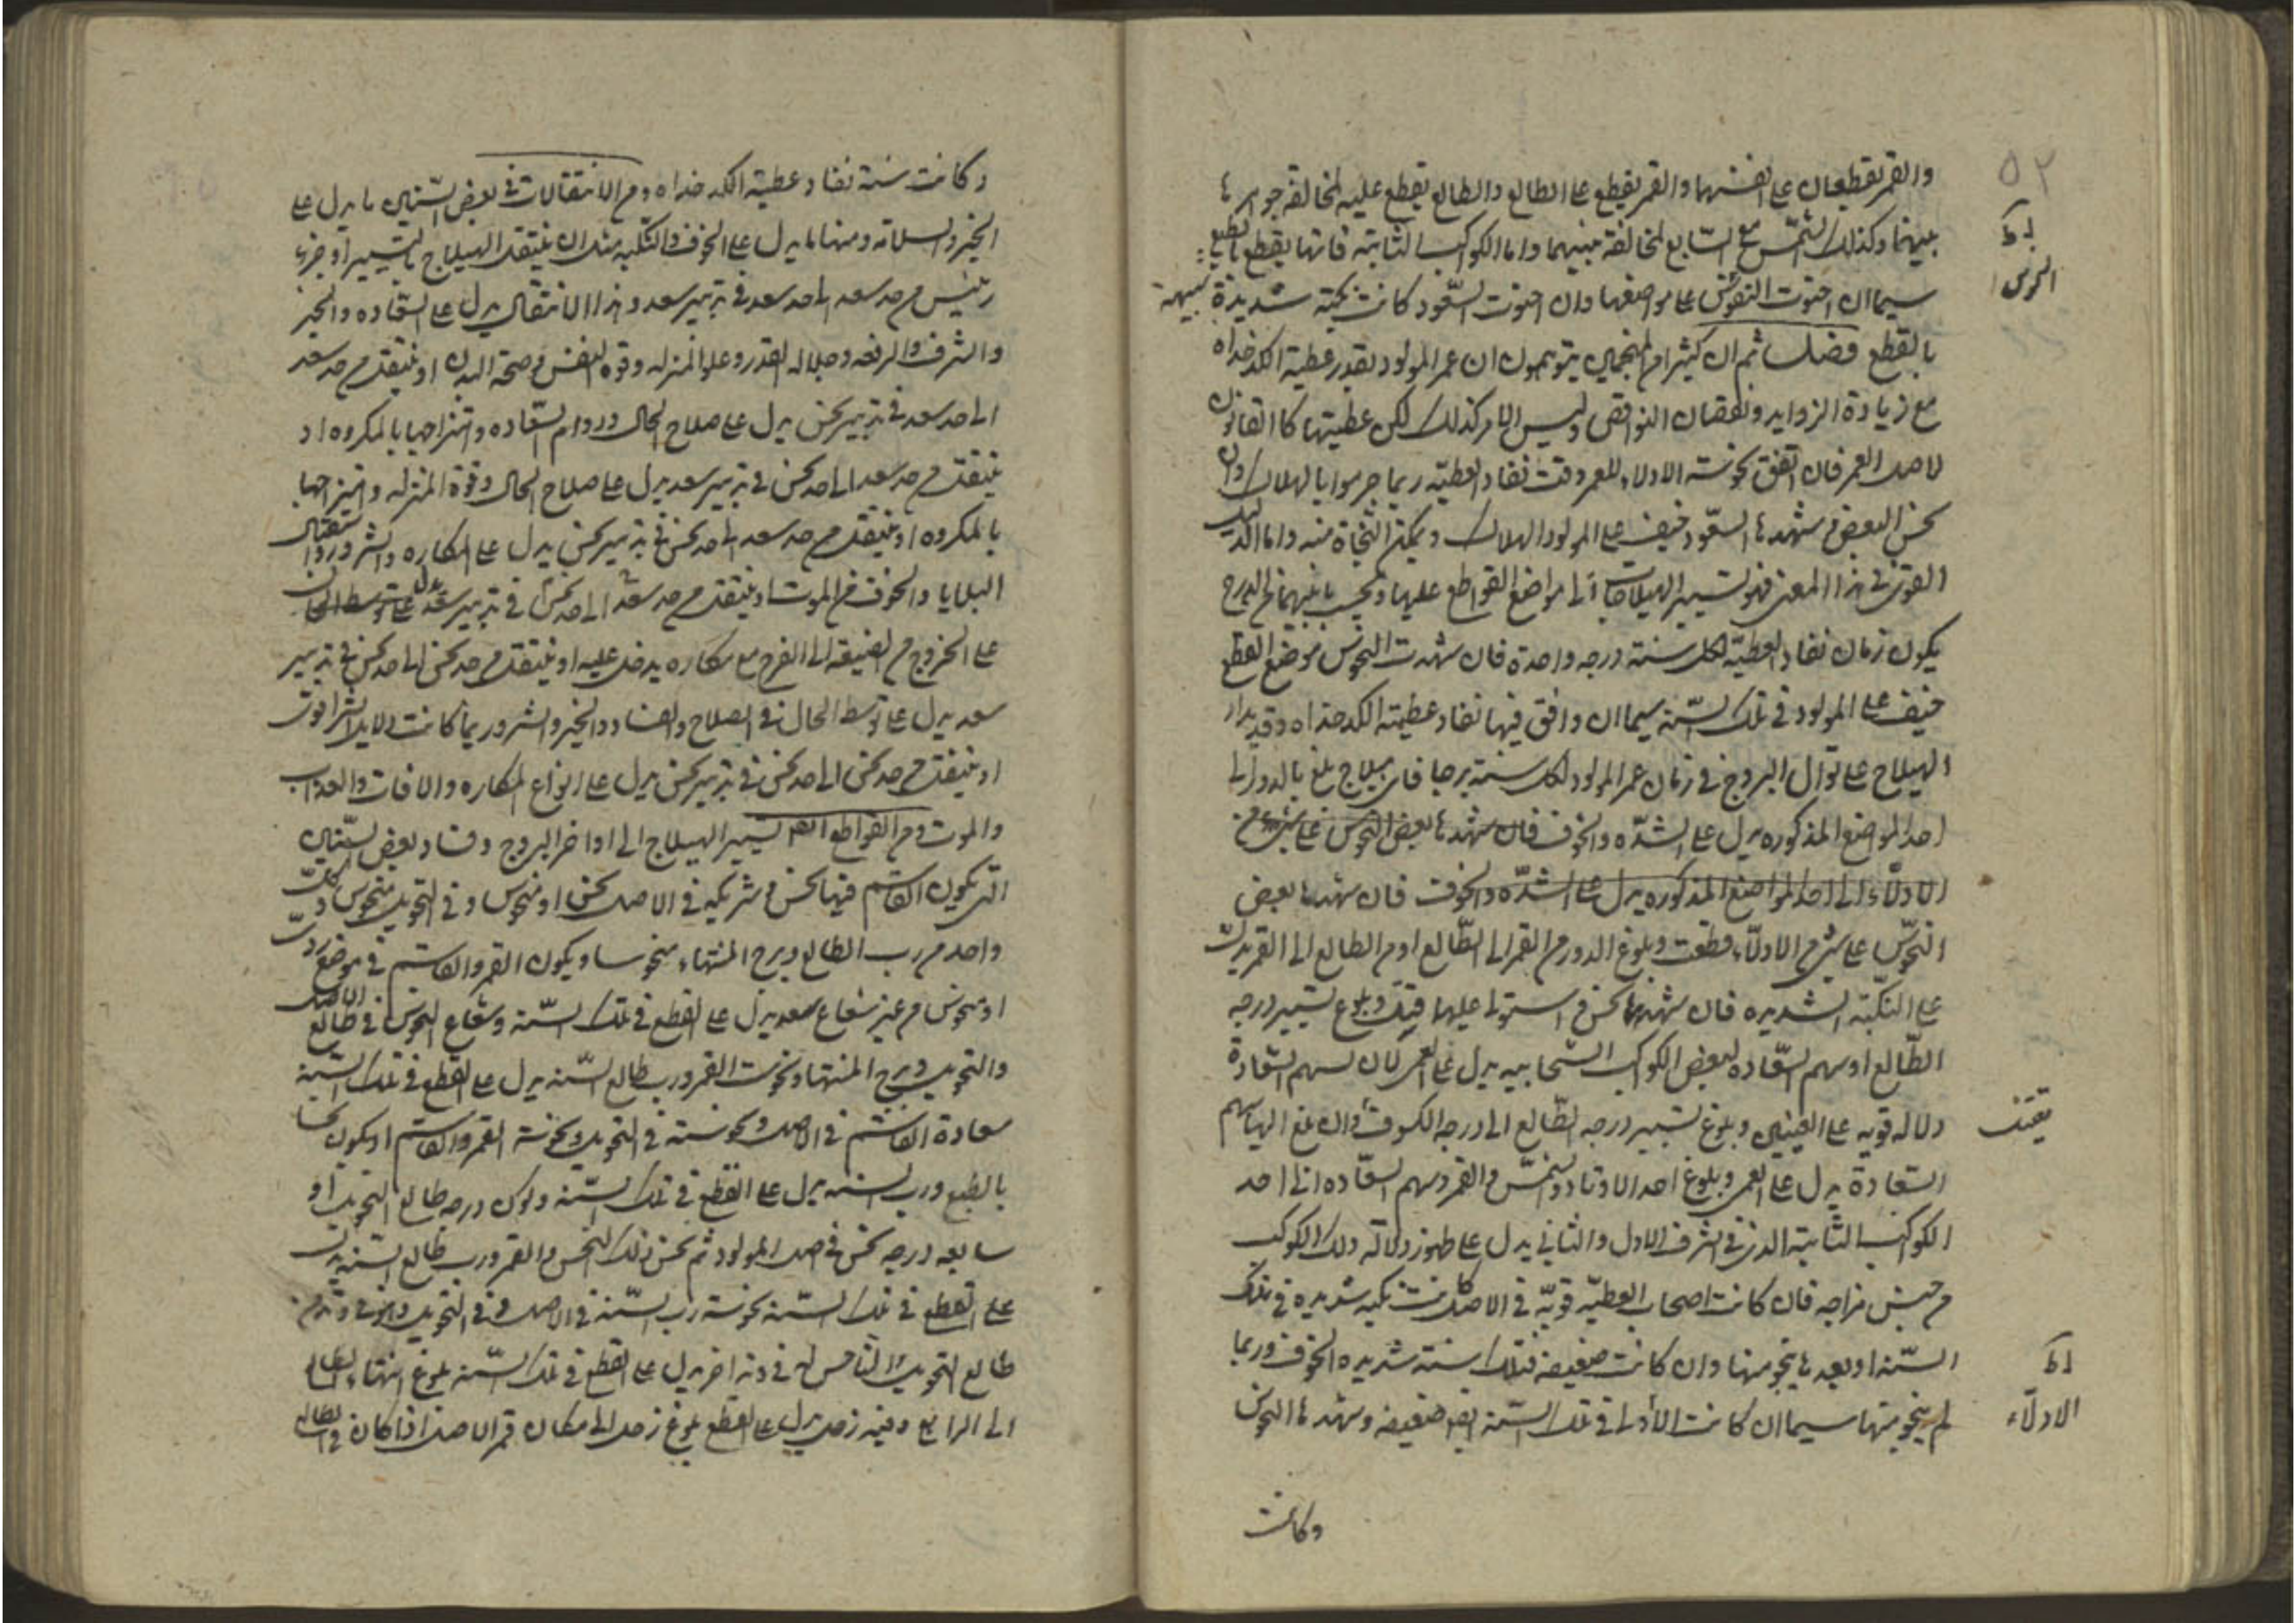 ٥٢
والقمر يقطعان على انفسهما والقمر يقطع على الطالع والطالع يقطع عليه لمخالفة جوهر ما
بينهما وكذلك الشمس مع السابع لمخالفة بينهما واما الكواكب الثابتة فانها يقطع بالطبع
سيما ان احتوت النحوس على مواضعها وان احتوت السعود كانت نكبة شديدة شبيهة
بالقطع فصل ثم ان كثيرا من المنجمين يتوهمون ان عمر المولود بقدر عطية الكدخداه
مع زيادة الزوايد ونقصان النواقص وليس الامر كذلك لكن عطيتها كالقانون
لاصل العمر فان اتفق نحوسة الادلاء للعمر وقت نفاد العطية ربما جرموا بالهلاك وان
نحس البعض وشهدها السعود خيف على المولود الهلاك ويمكن النجاة منه واما الدليل
القوى في هذا المعنى فهو تسيير الهيلاجات الى مواضع القواطع عليها ونحسب ما بينهما من الدرج
يكون زمان نفاد العطية لكل سنة درجه واحدة فان شهدت النحوس موضع القطع
خيف على المولود في تلك السنة سيما ان وافق فيها نفاد عطية الكدخداه وقد يدار
الهيلاج على توالي البروج في زمان عمر المولود لكل سنة برجا فاي هيلاج بلغ بالدور الى
احد المواضع المذكوره يدل على الشده والخوف فان شهدها بعض النحوس على شئ من
الادلاء الى احد المواضع المذكوره يدل على الشده والخوف فان شهدها بعض
النحوس على شئ من الادلاء قطعت وبلوغ الدور من القمر الى الطالع او من الطالع الى القمر يدل
على النكبة الشديده فان شهدها نحس و استولى عليها قتل وبلوغ تسيير درجه
الطالع او سهم السعاده لبعض الكواكب السحابيه يدل على العمى لان لسهم السعادة
دلاله قويه على العينين وبلوغ تسيير درجه الطالع الى درجه الكسوف وان بلغ اليها سهم
السعادة يدل على العمى وبلوغ احد الاوتاد والشمس والقمر وسهم السعاده الى احد
الكواكب الثابتة الذى في الشرف الاول والثاني يدل على ظهور دلالة ذلك الكوكب
من جنس مزاجه فان كانت اصحاب العطيه قوية في الاصل كانت نكبه شديده في تلك
السنة او بعد ما ينجو منها وان كانت ضعيفه فتلك سنة شديده الخوف وربما
لم ينجو منها سيما ان كانت الأدلا في تلك السنة ايضا ضعيفه وشهدها النحوس
الادلاء
وكانت
وكانت سنة نفاد عطية الكدخداه ومن الانتقالات في بعض السنين ما يدل على
الخير والسلامة ومنها ما يدل على الخوف والنكبه مثل ان ينتقل الهيلاج بالتسيير او جزء
رئيس من حد سعد الى حد سعد في تدبير سعد وهذا الانتقال يدل على السعاده والخير
والشرف والرفعه وجلاله القدر وعلو المنزله وقوة النفس وصحة البدن او ينتقل من حد سعد
الى حد سعد في تدبير نحس يدل على صلاح الحال ودوام السعاده وامتزاجها بالمكروه او
ينتقل من حد سعد الى حد نحس في تدبير سعد يدل على صلاح الحال وقوة المنزله وامتزاجها
بالمكروه او ينتقل من حد سعد الى حد نحس في تدبير نحس يدل على المكاره والشر وردوا استقبال
البلايا والخوف من الموت او ينتقل من حد سعد الى حد نحس في تدبير سعد يدل على توسط الحال
على الخروج من الضيقه الى الفرج مع مكاره يدخل عليه او ينتقل من حد نحس الى حد نحس في تدبير
سعد يدل على توسط الحال في الصلاح والفساد والخير والشر وربما كانت دلايل الشر اقوى
او ينتقل من حد نحس الى حد نحس في تدبير نحس يدل على انواع المكاره والافات والعذاب
والموت ومن القواطع ايضا تسيير الهيلاج الى اواخر البروج وفساد بعض السنين
التي يكون القاسم فيها نحس وشريكه في الاصل نحس او منحوس وفي التحويل منحوس وكل
واحد من رب الطالع وبرج المنتهاء منحوسا ويكون القمر والقاسم في موضع ردى
او منحوس من غير شعاع سعد يدل على القطع في تلك السنة وشعاع النحوس في طالع الاصل
والتحويل وبرج المنتها ونحوست القمر ورب طالع السنة يدل على القطع في تلك السنة
سعادة القاسم في الاصل ونحوسته في التحويل ونحوسة القمر والقاسم او يكون نحسا
بالطبع ورب السنة يدل على القطع في تلك السنة وكون درجه طالع التحويل او
سابعه درجه نحس في اصل المولود ثم نحس ذلك النحس والقمر ورب طالع السنة يدل
على القطع في تلك السنة نحوسة رب السنة في الاصل و في التحويل
طالع التحويل في وتد اخر يدل على القطع في تلك السنة بلوغ انتهاء الطالع
الى الرابع وفيه زحل يدل على القطع بلوغ زحل الى مكان قمر الاصل اذا كان في الطالع